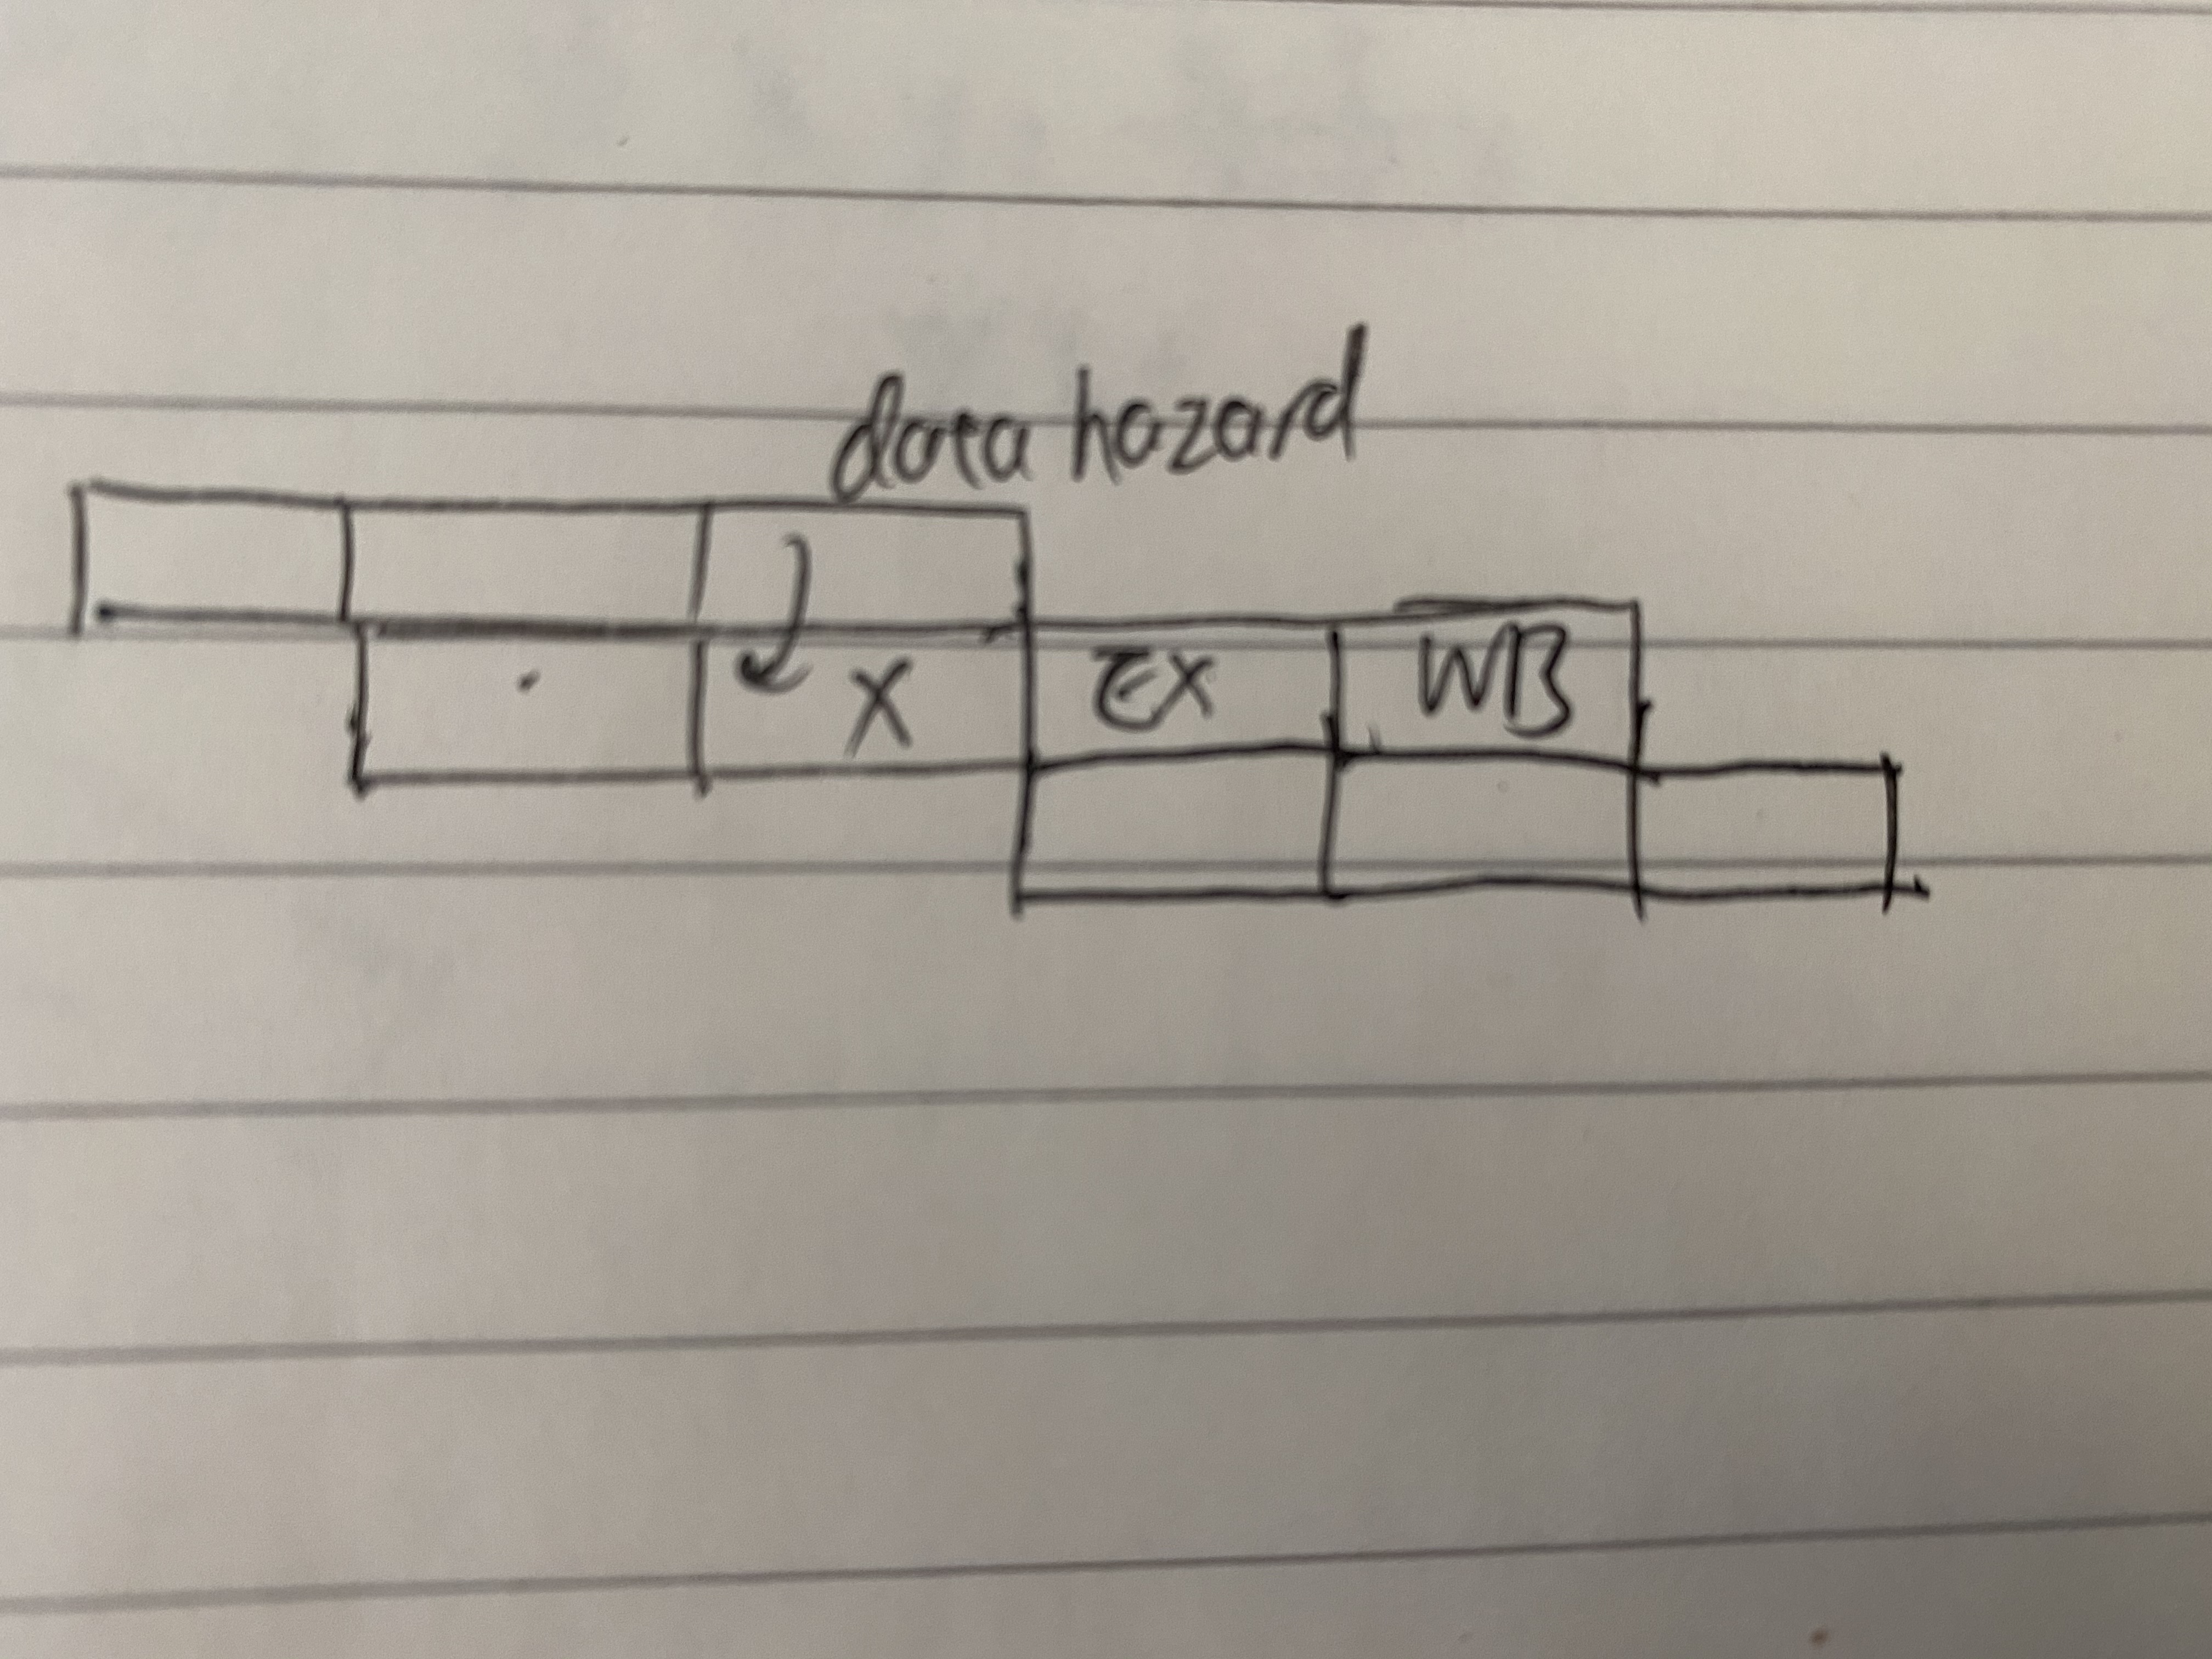 data hazard
X EX WB